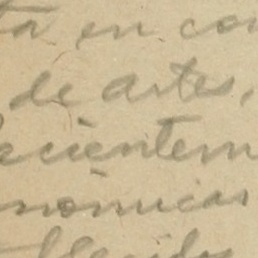 ta en con
de artes,
recientem
nómicas